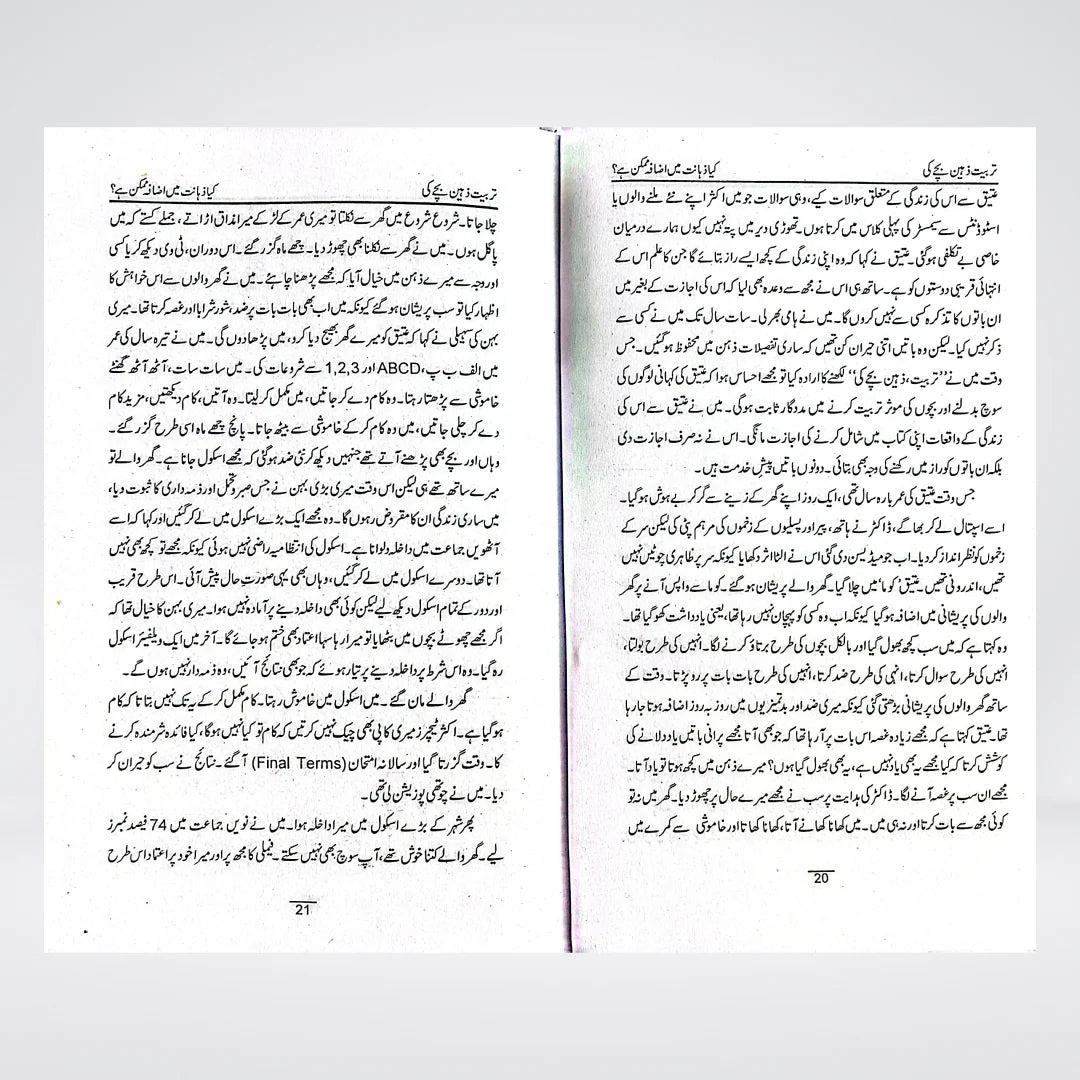 تربیت ذہین بچے کی
کیا ذہانت میں اضافہ ممکن ہے؟
عتیق سے اس کی زندگی کے متعلق سوالات کیے، وہی سوالات جو میں اکثر اپنے نئے ملنے والوں یا
اسٹوڈنٹس سے سیمسٹر کی پہلی کلاس میں کرتا ہوں۔ تھوڑی دیر میں پتہ نہیں کیوں ہمارے درمیان
خاصی بے تکلفی ہوگئی۔ عتیق نے کہا کہ وہ اپنی زندگی کے کچھ ایسے راز بتائے گا جن کا علم اس کے
انتہائی قریبی دوستوں کو ہے۔ ساتھ ہی اس نے مجھ سے وعدہ بھی لیا کہ اس کی اجازت کے بغیر میں
ان باتوں کا تذکرہ کسی سے نہیں کروں گا۔ میں نے ہامی بھر لی۔ سات سال تک میں نے کسی سے
ذکر نہیں کیا۔ لیکن وہ باتیں اتنی حیران کن تھیں کہ ساری تفصیلات ذہن میں محفوظ ہوگئیں۔ جس
وقت میں نے ’’تربیت، ذہین بچے کی‘‘ لکھنے کا ارادہ کیا تو مجھے احساس ہوا کہ عتیق کی کہانی لوگوں کی
سوچ بدلنے اور بچوں کی موثر تربیت کرنے میں مددگار ثابت ہوگی۔ میں نے عتیق سے اس کی
زندگی کے واقعات اپنی کتاب میں شامل کرنے کی اجازت مانگی۔ اس نے نہ صرف اجازت دی
بلکہ ان باتوں کو راز میں رکھنے کی وجہ بھی بتائی۔ دونوں باتیں پیشِ خدمت ہیں۔
جس وقت عتیق کی عمر بارہ سال تھی، ایک روز اپنے گھر کے زینے سے گر کر بے ہوش ہوگیا۔
اسے اسپتال لے کر بھاگے، ڈاکٹر نے ہاتھ، پیر اور پسلیوں کے زخموں کی مرہم پٹی کی لیکن سر کے
زخموں کو نظر انداز کر دیا۔ اب جو میڈیسن دی گئی اس نے الٹا اثر دکھایا کیونکہ سر پر ظاہری چوٹیں نہیں
تھیں، اندرونی تھیں۔ عتیق ’کوما‘ میں چلا گیا۔ گھر والے پریشان ہوگئے۔ کوما سے واپس آنے پر گھر
والوں کی پریشانی میں اضافہ ہوگیا کیونکہ اب وہ کسی کو پہچان نہیں رہا تھا، یعنی یادداشت کھو گیا تھا۔
وہ کہتا ہے کہ میں سب کچھ بھول گیا اور بالکل بچوں کی طرح برتاؤ کرنے لگا۔ انہیں کی طرح بولتا،
انہیں کی طرح سوال کرتا، انہی کی طرح ضد کرتا، انہیں کی طرح بات بات پر رو پڑتا۔ وقت کے
ساتھ گھر والوں کی پریشانی بڑھتی گئی کیونکہ میری ضد اور بدتمیزیوں میں روز بہ روز اضافہ ہوتا جا رہا
تھا۔ عتیق کہتا ہے کہ مجھے زیادہ غصہ اس بات پر آ رہا تھا کہ جو بھی آتا مجھے پرانی باتیں یاد دلانے کی
کوشش کرتا کہ کیا مجھے یہ بھی یاد نہیں ہے، یہ بھی بھول گیا ہوں؟ میرے ذہن میں کچھ ہوتا تو یاد آتا۔
مجھے ان سب پر غصہ آنے لگا۔ ڈاکٹر کی ہدایت پر سب نے مجھے میرے حال پر چھوڑ دیا۔ گھر میں نہ تو
کوئی مجھ سے بات کرتا اور نہ ہی میں۔ میں کھانا کھانے آتا، کھانا کھاتا اور خاموشی سے کمرے میں
20
تربیت ذہین بچے کی
کیا ذہانت میں اضافہ ممکن ہے؟
چلا جاتا۔ شروع شروع میں گھر سے نکلتا تو میری عمر کے لڑکے میرا مذاق اڑاتے، جملے کستے کہ میں
پاگل ہوں۔ میں نے گھر سے نکلنا بھی چھوڑ دیا۔ چھے ماہ گزر گئے۔ اس دوران، ٹی وی دیکھ کر یا کسی
اور وجہ سے میرے ذہن میں خیال آیا کہ مجھے پڑھنا چاہئے۔ میں نے گھر والوں سے اس خواہش کا
اظہار کیا تو سب پریشان ہوگئے کیونکہ میں اب بھی بات بات پر ضد، شور شرابا اور غصہ کرتا تھا۔ میری
بہن کی سہیلی نے کہا کہ عتیق کو میرے گھر بھیج دیا کرو، میں پڑھا دوں گی۔ میں نے تیرہ سال کی عمر
میں الف ب پ، ABCD اور 1,2,3 سے شروعات کی۔ میں سات سات، آٹھ آٹھ گھنٹے
خاموشی سے پڑھتا رہتا۔ وہ کام دے کر جاتیں، میں مکمل کر لیتا۔ وہ آتیں، کام دیکھتیں، مزید کام
دے کر چلی جاتیں، میں وہ کام کر کے خاموشی سے بیٹھ جاتا۔ پانچ چھے ماہ اسی طرح گزر گئے۔
وہاں اور بچے بھی پڑھنے آتے تھے جنہیں دیکھ کر نئی ضد ہوگئی کہ مجھے اسکول جانا ہے۔ گھر والے تو
میرے ساتھ تھے ہی لیکن اس وقت میری بڑی بہن نے جس صبر و تحمل اور ذمہ داری کا ثبوت دیا،
میں ساری زندگی ان کا مقروض رہوں گا۔ وہ مجھے ایک بڑے اسکول میں لے کر گئیں اور کہا کہ اسے
آٹھویں جماعت میں داخلہ دلوانا ہے۔ اسکول کی انتظامیہ راضی نہیں ہوئی کیونکہ مجھے تو کچھ بھی نہیں
آتا تھا۔ دوسرے اسکول میں لے کر گئیں، وہاں بھی یہی صورتِ حال پیش آئی۔ اس طرح قریب
اور دور کے تمام اسکول دیکھ لیے لیکن کوئی بھی داخلہ دینے پر آمادہ نہیں ہوا۔ میری بہن کا خیال تھا کہ
اگر مجھے چھوٹے بچوں میں بٹھایا تو میرا رہا سہا اعتماد بھی ختم ہو جائے گا۔ آخر میں ایک ویلفیئر اسکول
رہ گیا۔ وہ اس شرط پر داخلہ دینے پر تیار ہوئے کہ جو بھی نتائج آئیں، وہ ذمہ دار نہیں ہوں گے۔
گھر والے مان گئے۔ میں اسکول میں خاموش رہتا۔ کام مکمل کر کے یہ تک نہیں بتاتا کہ کام
ہوگیا ہے۔ اکثر ٹیچرز میری کاپی بھی چیک نہیں کرتیں کہ کام تو کیا نہیں ہوگا، کیا فائدہ شرمندہ کرنے
کا۔ وقت گزرتا گیا اور سالانہ امتحان (Final Terms) آگئے۔ نتائج نے سب کو حیران کر
دیا۔ میں نے چوتھی پوزیشن لی تھی۔
پھر شہر کے بڑے اسکول میں میرا داخلہ ہوا۔ میں نے نویں جماعت میں 74 فیصد نمبرز
لیے۔ گھر والے کتنا خوش تھے، آپ سوچ بھی نہیں سکتے۔ فیملی کا مجھ پر اور میرا خود پر اعتماد اس طرح
21